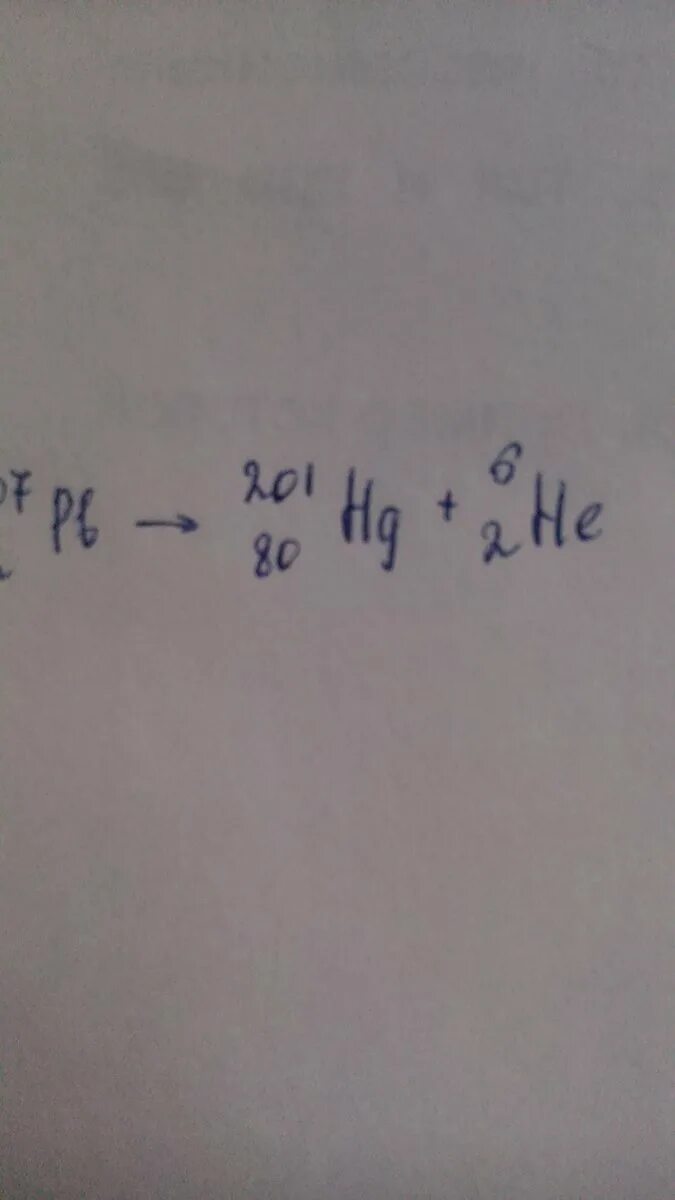 07 Pb → 201 80 Hg + 6 2 He